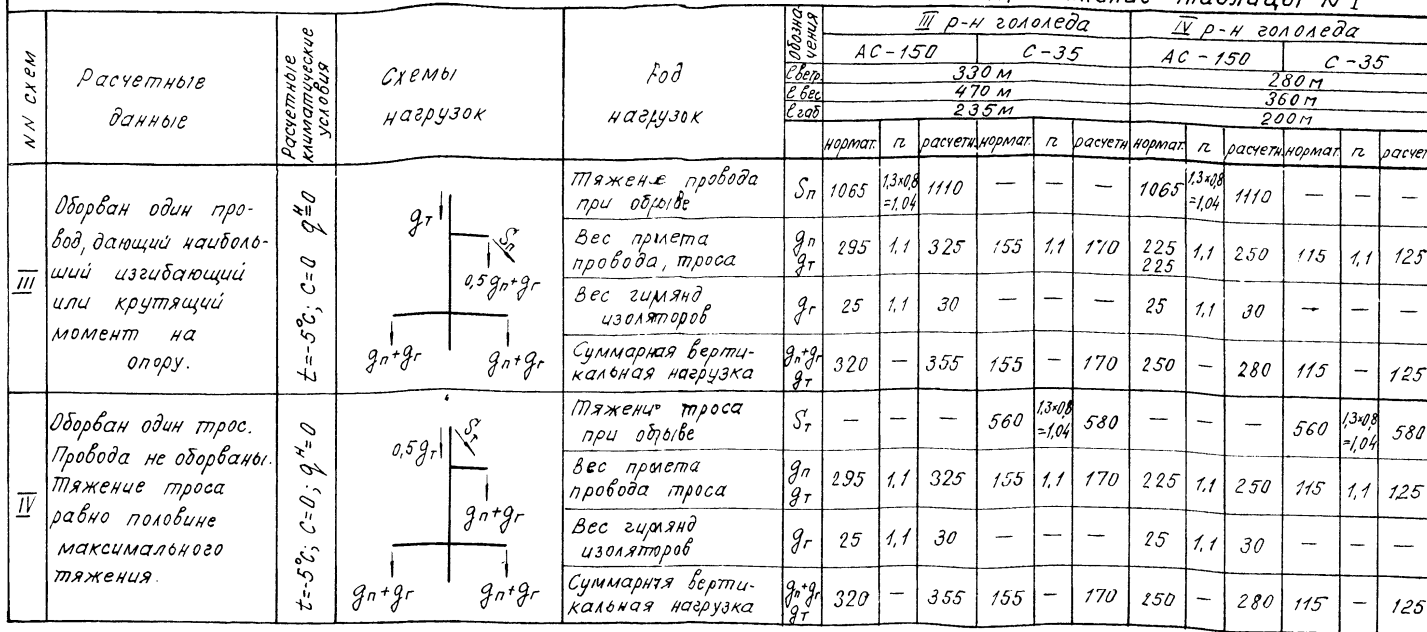 таблицы N 1
NN схем
Расчетные данные
Расчетные климатические условия
Схемы нагрузок
Род нагрузок
Обозначения
III р-н гололеда
IV р-н гололеда
АС-150
С-35
АС-150
С-35
ℓ ветр
330 м
280 м
ℓ вес
470 м
360 м
ℓ габ
235 м
200 м
нормат. n расчетн. нормат. n расчетн нормат. n расчетн. нормат. n расчет
III
Оборван один про-
вод, дающий наиболь-
ший изгибающий
или крутящий
момент на
опору.
t=-5°C; C=0 qᴴ=0
gт
Sп
0,5gп+gг
gп+gг
gп+gг
Тяжение провода при обрыве Sп 1065 1,3×0,8=1,04 1110 — — — 1065 1,3×0,8=1,04 1110 — — —
Вес пролета провода, троса gп gт 295 1,1 325 155 1,1 170 225 225 1,1 250 115 1,1 125
Вес гирлянд изоляторов gг 25 1,1 30 — — — 25 1,1 30 — — —
Суммарная верти-кальная нагрузка gп+gг gт 320 — 355 155 — 170 250 — 280 115 — 125
IV
Оборван один трос.
Провода не оборваны.
Тяжение троса
равно половине
максимального
тяжения.
t=-5°C; C=0; qᴴ=0
0,5gт
Sт
gп+gг
gп+gг
gп+gг
Тяжение троса при обрыве Sт — — — 560 1,3×0,8=1,04 580 — — — 560 1,3×0,8=1,04 580
Вес пролета провода троса gп gт 295 1,1 325 155 1,1 170 225 1,1 250 115 1,1 125
Вес гирлянд изоляторов gг 25 1,1 30 — — — 25 1,1 30 — — —
Суммарная верти-кальная нагрузка gп+gг gт 320 — 355 155 — 170 250 — 280 115 — 125